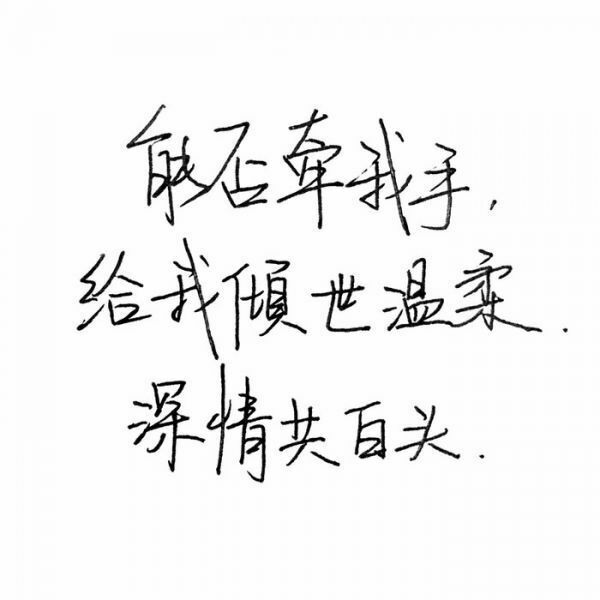 能否牵我手,
给我傾世温柔.
深情共百头.